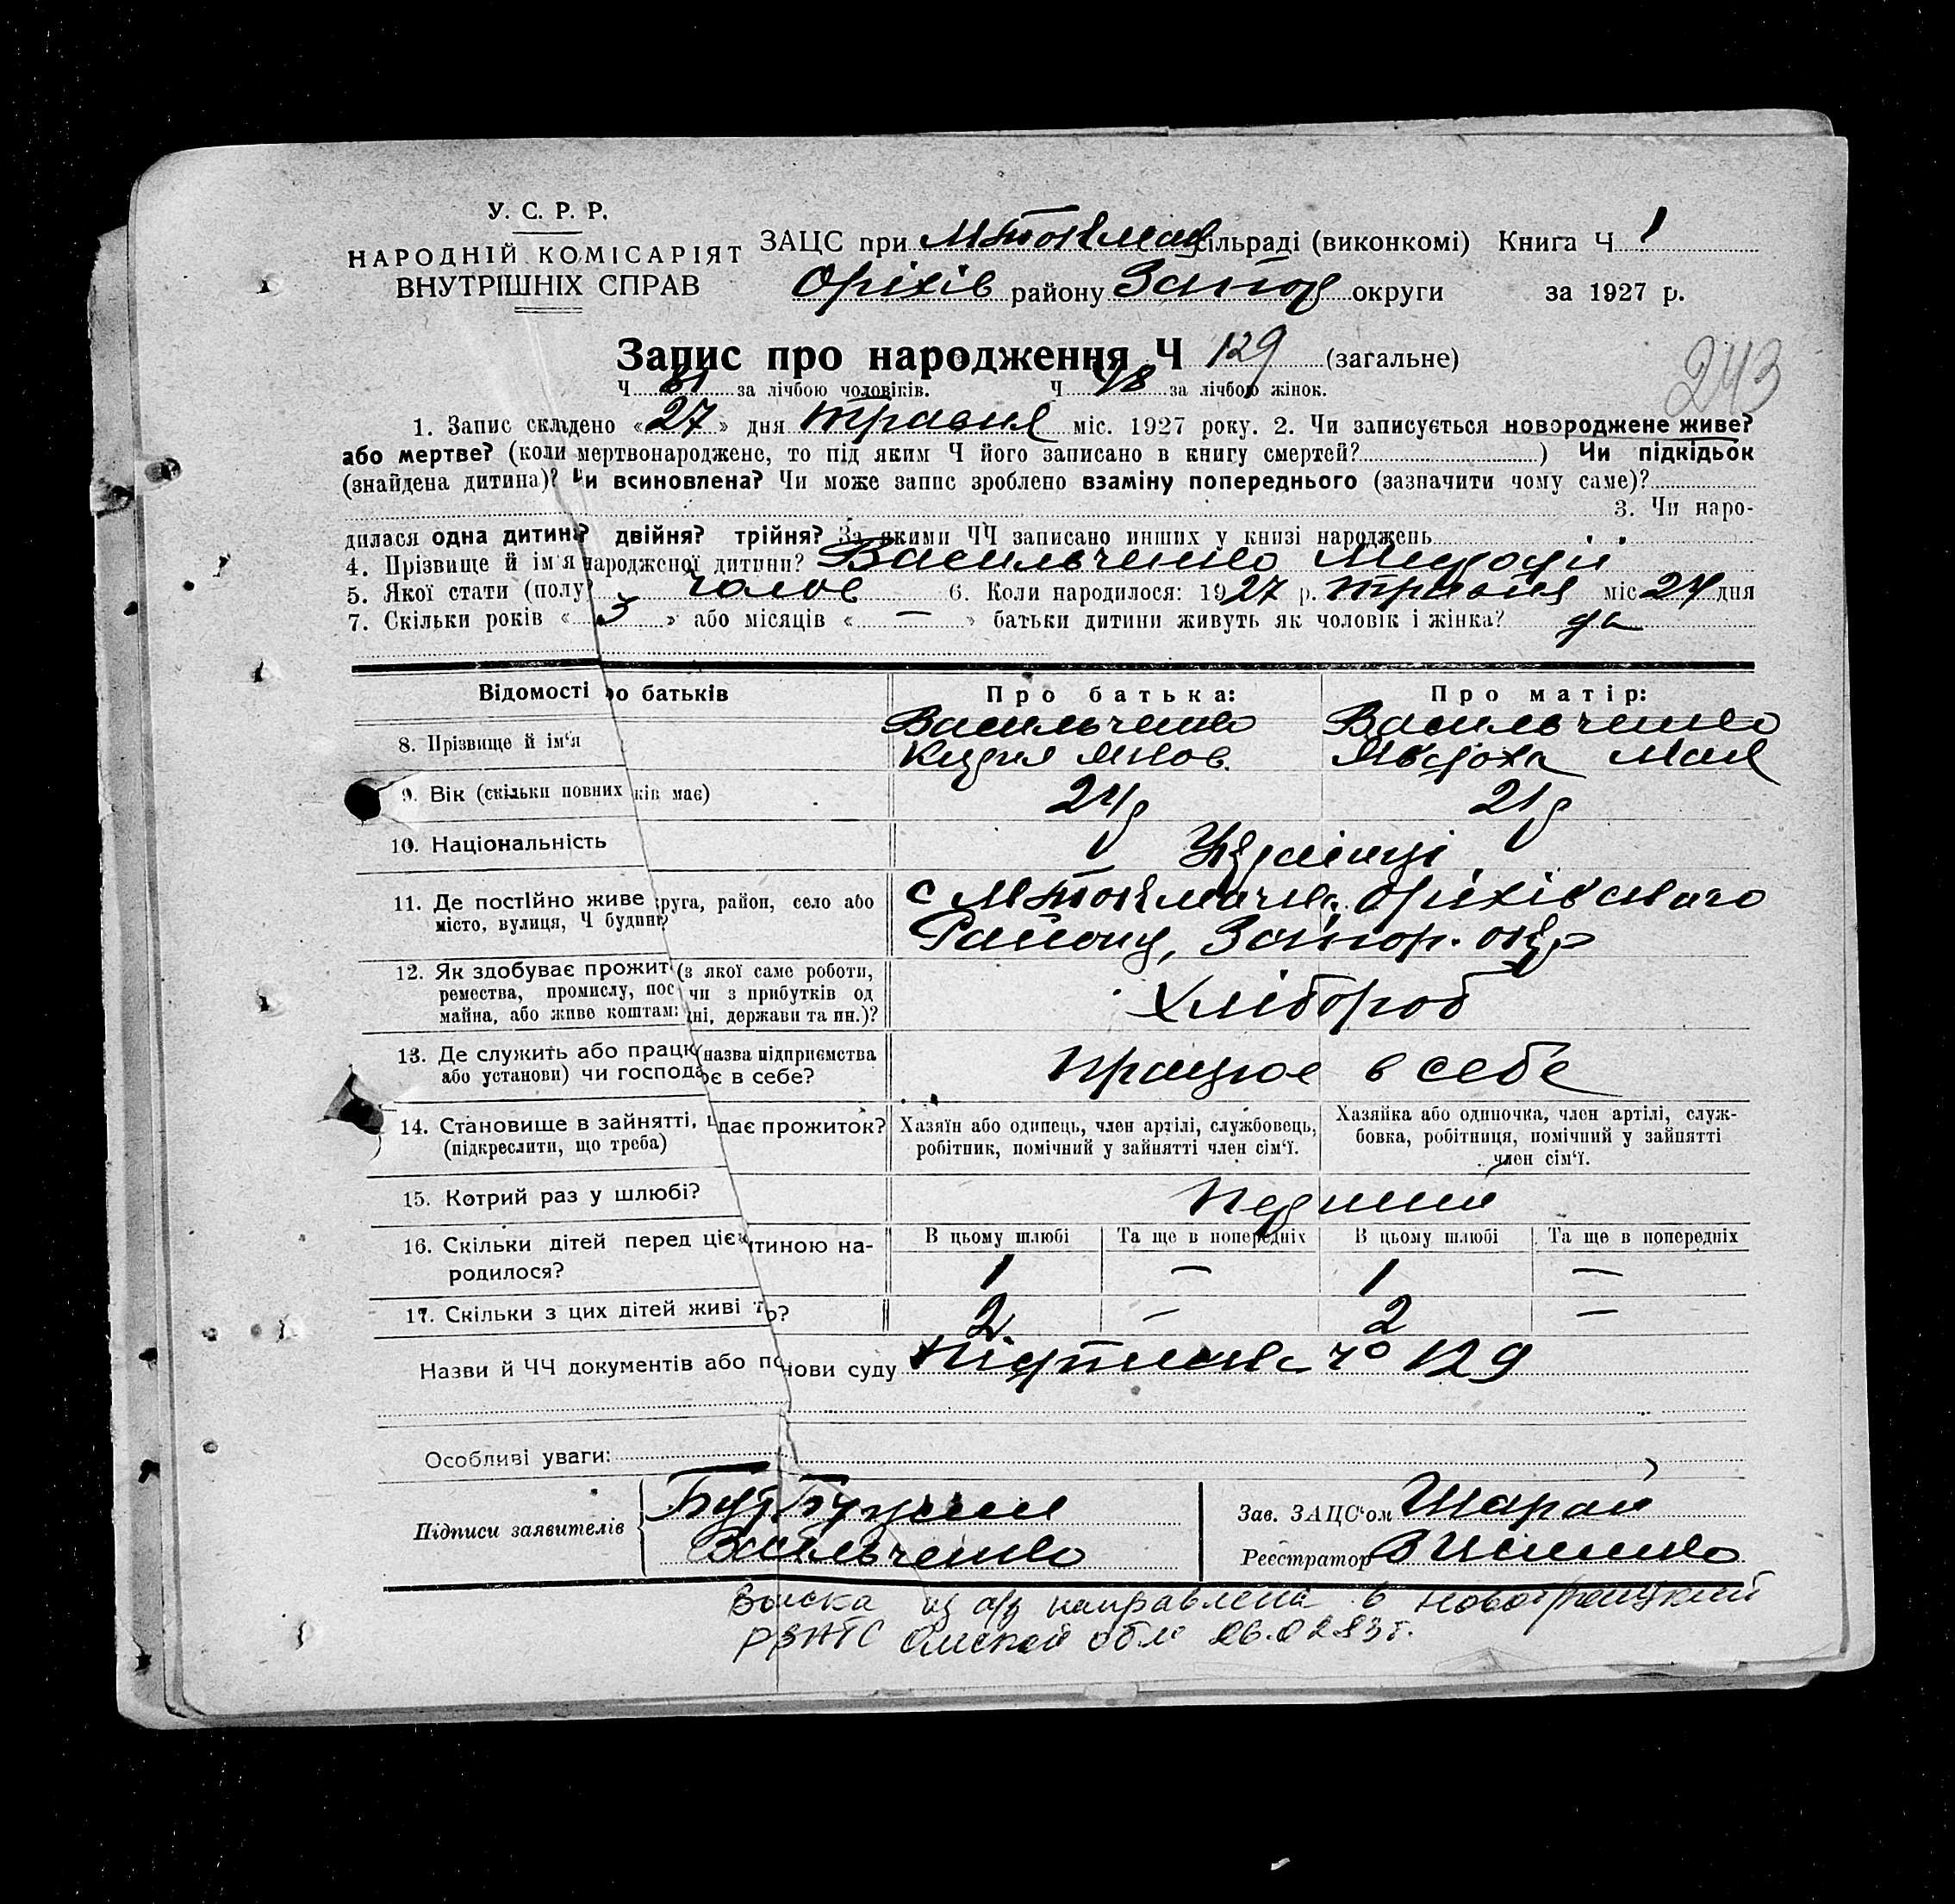 У. С. Р. Р.
НАРОДНІЙ КОМІСАРІЯТ
ВНУТРІШНІХ СПРАВ
ЗАЦС при М Токмач сільраді (виконкомі) Книга Ч 1
Оріхів району Запор округи за 1927 р.
Запис про народження Ч 129 (загальне)
243
Ч 81 за лічбою чоловіків. Ч 48 за лічбою жінок.
1. Запис складено « 27 » дня травня міс. 1927 року. 2. Чи записується новороджене живе?
або мертве? (коли мертвонароджене, то під яким Ч його записано в книгу смертей? ) Чи підкідьок
(знайдена дитина)? Чи всиновлена? Чи може запис зроблено взаміну попереднього (зазначити чому саме)?
3. Чи наро-
дилася одна дитина? двійня? трійня? За якими ЧЧ записано инших у книзі народжень
4. Прізвище й ім'я народженої дитини? Васильченко
5. Якої стати (полу) чолов 6. Коли народилося: 1927 р. травня міс 24 дня
7. Скільки років « 3 » або місяців « — » батьки дитини живуть як чоловік і жінка? да
Відомості про батьків Про батька: Про матір:
8. Прізвище й ім'я Васильченко Васильченко
9. Вік (скільки повних років має) 24р 21р
10. Національність Українці
11. Де постійно живе округа, район, село або
місто, вулиця, Ч будинк?
с М Токмачка, Оріхівского
Району, Запор. окр
12. Як здобуває прожит (з якої саме роботи,
ремества, промислу, пос чи з прибутків од
майна, або живе коштам дні, держави та ин.)?
Хлібороб
13. Де служить або працю (назва підприємства
або установи) чи господарює в себе?
працює в себе
14. Становище в зайнятті, що дає прожиток?
(підкреслити, що треба)
Хазяїн або одинець, член артілі, службовець,
робітник, помічний у зайнятті член сім'ї.
Хазяйка або одиночка, член артілі, служ-
бовка, робітниця, помічний у зайнятті
член сім'ї.
15. Котрий раз у шлюбі?
16. Скільки дітей перед цією дитиною на-
родилося?
В цьому шлюбі Та ще в попередніх В цьому шлюбі Та ще в попередніх
1 — 1 —
17. Скільки з цих дітей живі то? 2 — 2 —
Назви й ЧЧ документів або постанови суду Підписка Чо 129
Особливі уваги:
Підписи заявителів
Васильченко
Зав. ЗАЦС'ом Шарай
Реєстратор
Выписка из а/з направлена в Новотроицкий
РЗАГС Омской обл